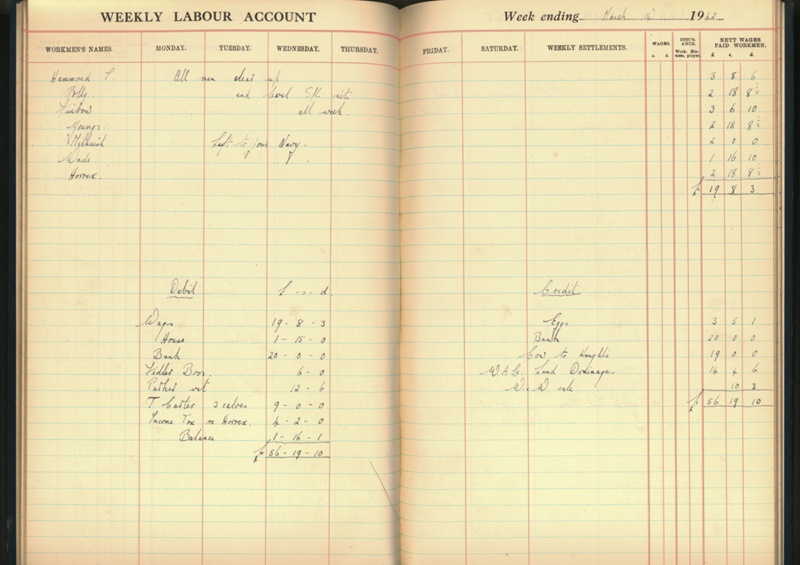 WEEKLY LABOUR ACCOUNT
Week ending March 1942
WORKMEN'S NAMES. MONDAY. TUESDAY. WEDNESDAY. THURSDAY. FRIDAY. SATURDAY. WEEKLY SETTLEMENTS. WAGES. s. d. INSURANCE. NETT WAGES PAID WORKMEN. £ s. d.
Hammond All men clear up 3 8 6
Polly and level all week 2 18 8
3 6 10
Youngs 2 18 8
Left to join Navy. 2 0 0
Wade 1 16 10
Horrex 2 18 8
£ 19 8 3
Debit £ - s - d.
Credit
Wages 19 - 8 - 3
House 1 - 15 - 0
Bank 20 - 0 - 0
Fidler Bros. 6 - 0
12 - 6
T Carter 3 calves 9 - 0 - 0
Income Tax re Horrex. 4 - 2 - 0
Balance 1 - 16 - 1
£ 56 - 19 - 10
Eggs 3 5 1
Bank 20 0 0
Cow to Knights 19 0 0
W.A.C. Land Drainage 14 4 6
10 3
£ 56 19 10